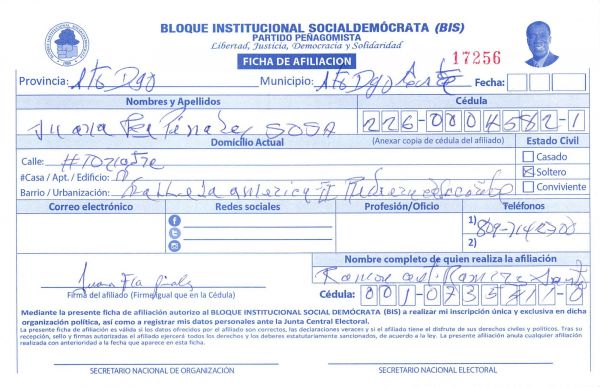 BLOQUE INSTITUCIONAL SOCIALDEMÓCRATA (BIS)
PARTIDO PEÑAGOMISTA
Libertad, Justicia, Democracia y Solidaridad
FICHA DE AFILIACION
17256
Provincia: Sto Dgo Municipio: Sto Dgo Fecha:
Nombres y Apellidos Cédula
SOSA 226-0004582-1
Domicilio Actual (Anexar copia de cédula del afiliado) Estado Civil
Casado
Calle:
#Casa / Apt. / Edificio: Soltero
Barrio / Urbanización: Conviviente
Correo electrónico Redes sociales Profesión/Oficio Teléfonos
1) 809-714
2)
Nombre completo de quien realiza la afiliación
Ramon Ramirez
Firma del afiliado (Firme igual que en la Cédula) Cédula: 001-0735
Mediante la presente ficha de afiliación autorizo al BLOQUE INSTITUCIONAL SOCIAL DEMÓCRATA (BIS) a realizar mi inscripción única y exclusiva en dicha
organización política, así como a registrar mis datos personales ante la Junta Central Electoral.
La presente ficha de afiliación es válida si los datos ofrecidos por el afiliado son correctos, las declaraciones veraces y si el afiliado tiene el disfrute de sus derechos civiles y políticos. Tras su
recepción, sello y firmas autorizadas el afiliado ejercerá todos los derechos y los deberes estatutariamente sancionados, de acuerdo a la ley. La presente afiliación anula cualquier afiliación
realizada con anterioridad a la fecha que aparece en esta ficha.
SECRETARIO NACIONAL DE ORGANIZACIÓN SECRETARIO NACIONAL ELECTORAL